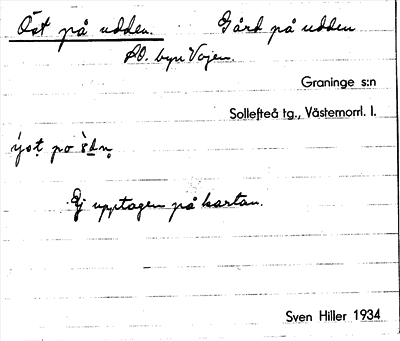 Öst på udden. Gård på udden
i byn Vojen.
Graninge s:n
Sollefteå tg., Västernorrl. l.
Ej upptagen på kartan.
Sven Hiller 1934